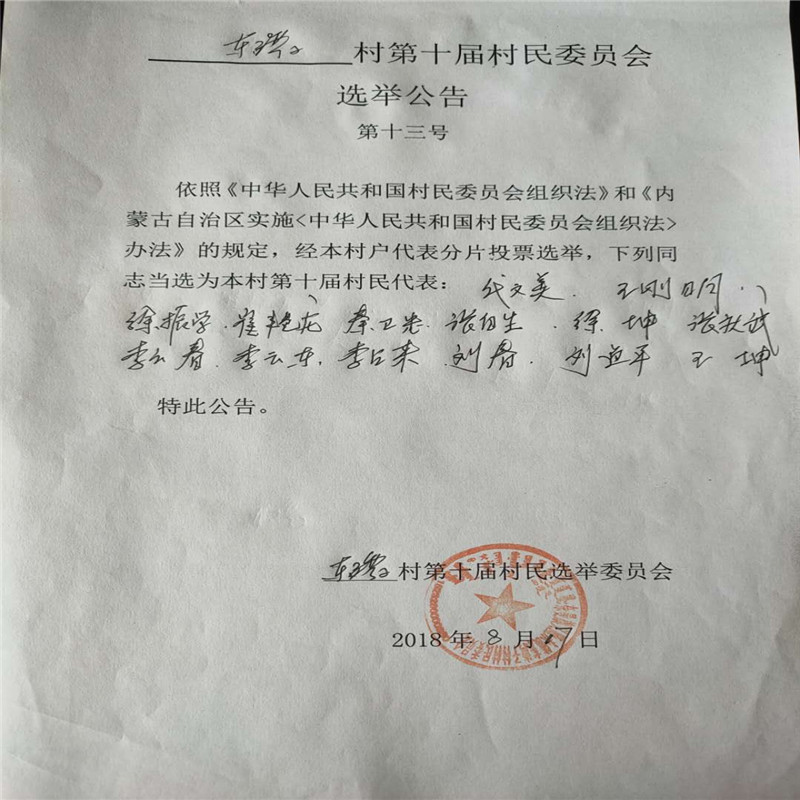 村第十届村民委员会
选举公告
第十三号
依照《中华人民共和国村民委员会组织法》和《内
蒙古自治区实施<中华人民共和国村民委员会组织法>
办法》的规定，经本村户代表分片投票选举，下列同
志当选为本村第十届村民代表：代文美. 王刚明、
徐振学. 崔艳龙 秦卫忠. 张自生. 徐坤 张秋武
李云春. 李云东. 李占来 刘春. 刘道平 王坤
特此公告。
村第十届村民选举委员会
2018年8月17日